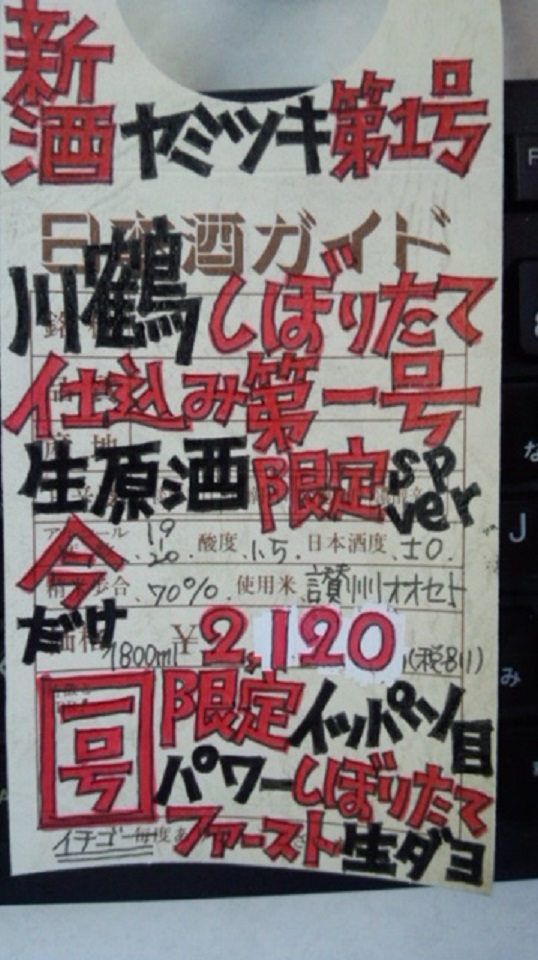 新酒 ヤミツキ第1号
日本酒ガイド
川鶴 しぼりたて
仕込み第一号
生原酒 限定 sp ver
アルコール 19 20 酸度 1.5 日本酒度 ±0.
今だけ
精米歩合 70% 使用米 讃州オオセト
価格 1800ml ¥2,120 (税別)
一号 限定イッパツ目
パワーしぼりたて
イチゴー ファースト生ダヨ